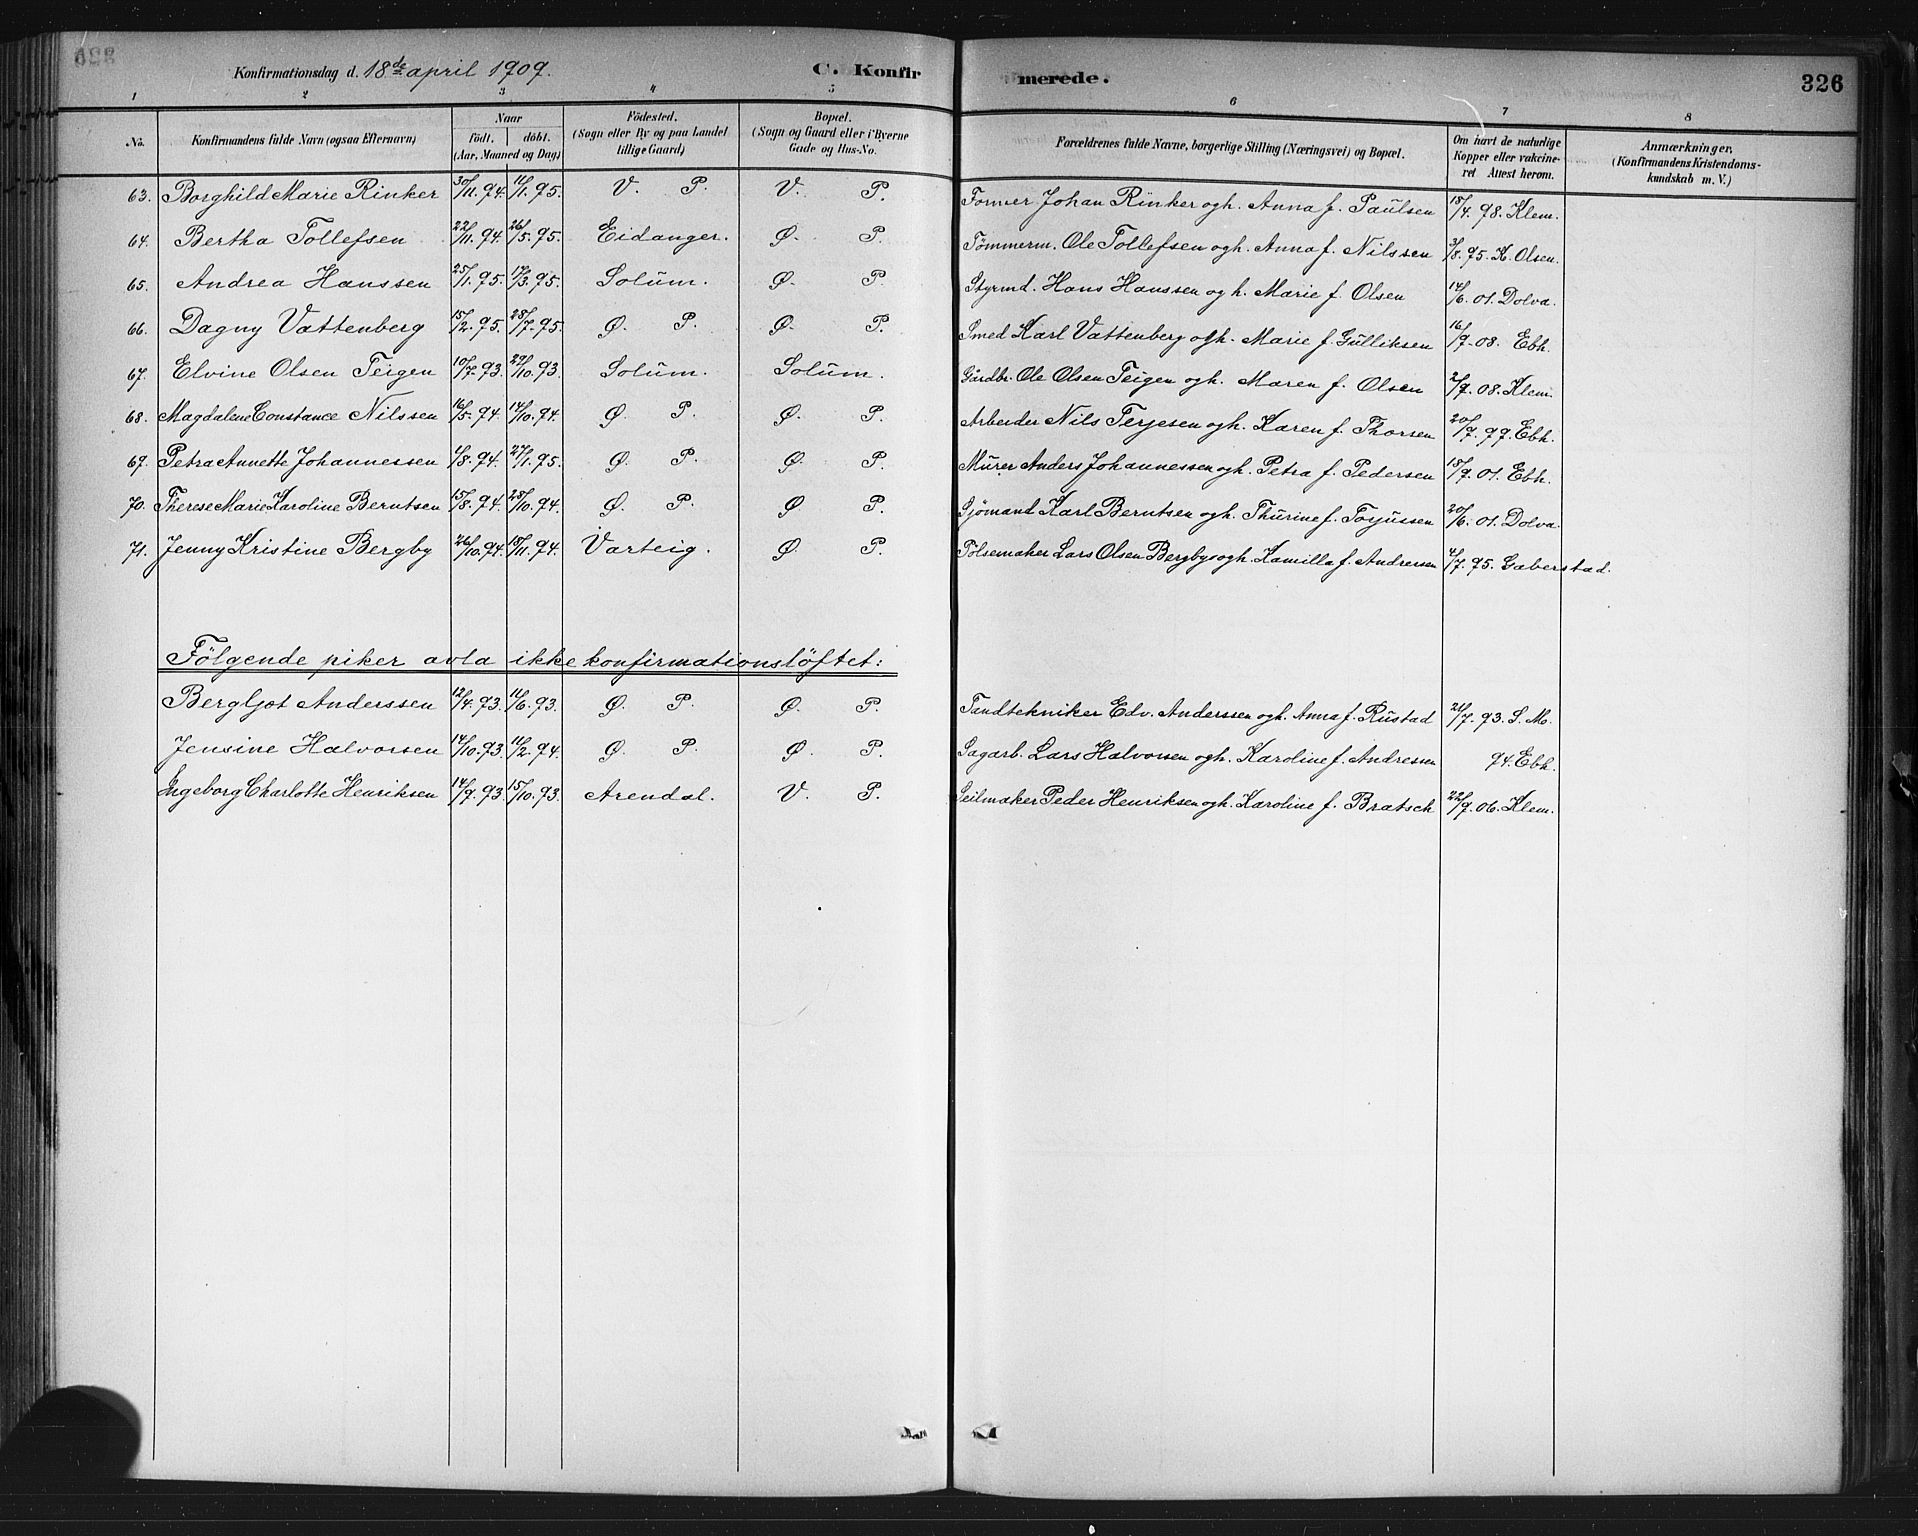 Konfirmationsdag d. 18de april 1909. C. Konfirmerede. 326
1 2 3 4 5 6 7 8
No. Konfirmandens fulde Navn (ogsaa Efternavn) Naar født. døbt. (Aar, Maaned og Dag) Fødested. (Sogn eller By og paa Landet tillige Gaard) Bopæl. (Sogn og Gaard eller i Byerne Gade og Hus-No. Forældrenes fulde Navne, borgerlige Stilling (Næringsvei) og Bopæl. Om havt de naturlige Kopper eller vakcineret Attest herom. Anmærkninger, (Konfirmandens Kristendomskundskab m. V.)
63. Borghild Marie Rinker 30/11.94. 11/1.95. V. P. V. P. Former Johan Rinker ogh. Anna f. Paulsen 18/4. 98. Klem.
64. Bertha Tollefsen 22/11.94. 26/5.95. Eidanger. Ø. P. Tømmerm. Ole Tollefsen ogh. Anna f. Nilssen 3/8.95. K. Olsen.
65. Andrea Hanssen 25/1.95. 17/3.95. Solum. Ø. P. Styrmd. Hans Hanssen ogh. Marie f. Olsen 14/6.01. Dolva.
66. Dagny Vattenberg 15/2.95. 28/7.95. Ø. P. Ø. P. Smed Karl Vattenberg ogh. Marie f. Gulliksen 16/9.08. Ebh.
67. Elvine Olsen Teigen 10/7.93. 29/10.93. Solum. Solum. Gårdbr. Ole Olsen Teigen ogh. Maren f. Olsen 2/9.08. Klem.
68. Magdalene Constance Nilssen 16/5.94. 14/10.94. Ø. P. Ø. P. Arbeider Nils Terjesen ogh. Karen f. Thorsen 20/9.99. Ebh.
69. Petra Annette Johannessen 1/8.94. 27/1.95. Ø. P. Ø. P. Murer Anders Johannessen ogh. Petra f. Pedersen 18/9.01. Ebh.
70. Therese Marie Karoline Berntsen 15/8.94. 28/10.94. Ø. P. Ø. P. Sjømand Karl Berntsen ogh. Thurine f. Torjussen 20/6.01. Dolva.
71. Jenny Kristine Bergby 26/10.94. 18/11.94. Varteig. Ø. P. Pølsemaker Lars Olsen Bergby ogh. Kamilla f. Andresen 4/7.95. Gaberstad.
Følgende piker avla ikke konfirmationsløftet:
Bergljot Anderssen 12/4.93. 11/6.93. Ø. P. Ø. P. Tandtekniker Edv. Anderssen ogh. Anna f. Rustad 21/7.93. S. Mo.
Jensine Halvorsen 14/10.93. 11/2.94. Ø. P. Ø. P. Sagarb. Lars Halvorsen ogh. Karoline f. Andresen 94. Ebh.
Ingeborg Charlotte Henriksen 14/9.93. 15/10.93. Arendal. V. P. Seilmaker Peder Henriksen ogh. Karoline f. Bratsch 22/9.06. Klem.